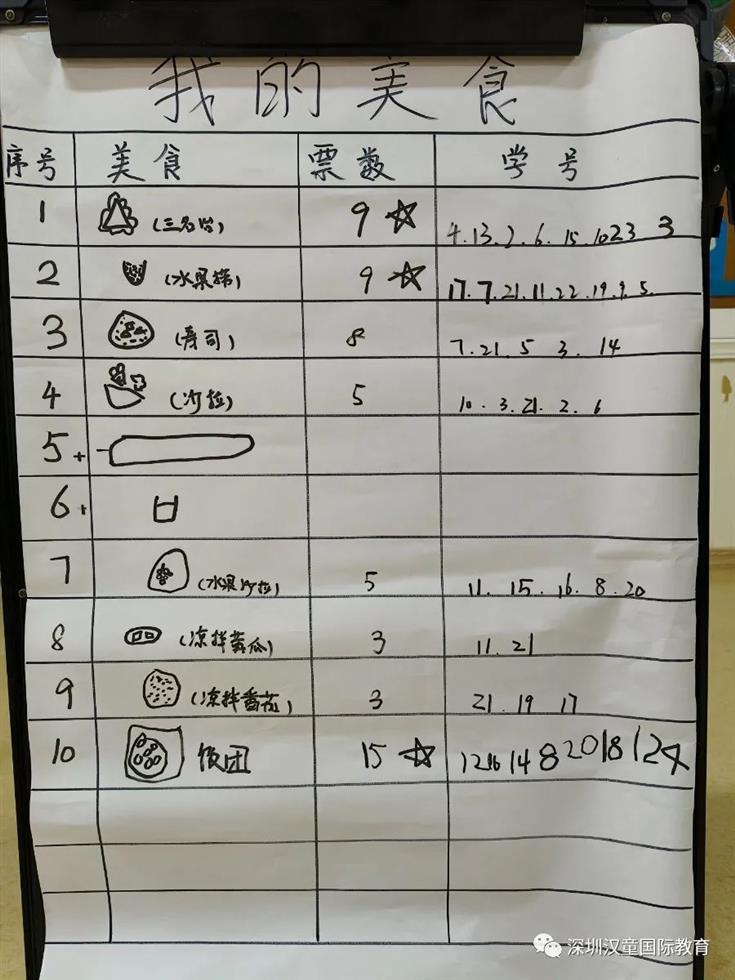 我的美食
序号 美食 票数 学号
1 (三名治) 9 4.13.2.6.15.1023 3
2 (水果捞) 9 17.7.21.11.22.19.9.5.
3 (寿司) 8 7.21.5 3.14
4 (沙拉) 5 10.3.21.2.6
5+
6+
7 (水果沙拉) 5 11.15.16.8.20
8 (凉拌黄瓜) 3 11.21
9 (凉拌番茄) 3 21.19 17
10 饭团 15 1216 14 8 2018 124
深圳汉童国际教育